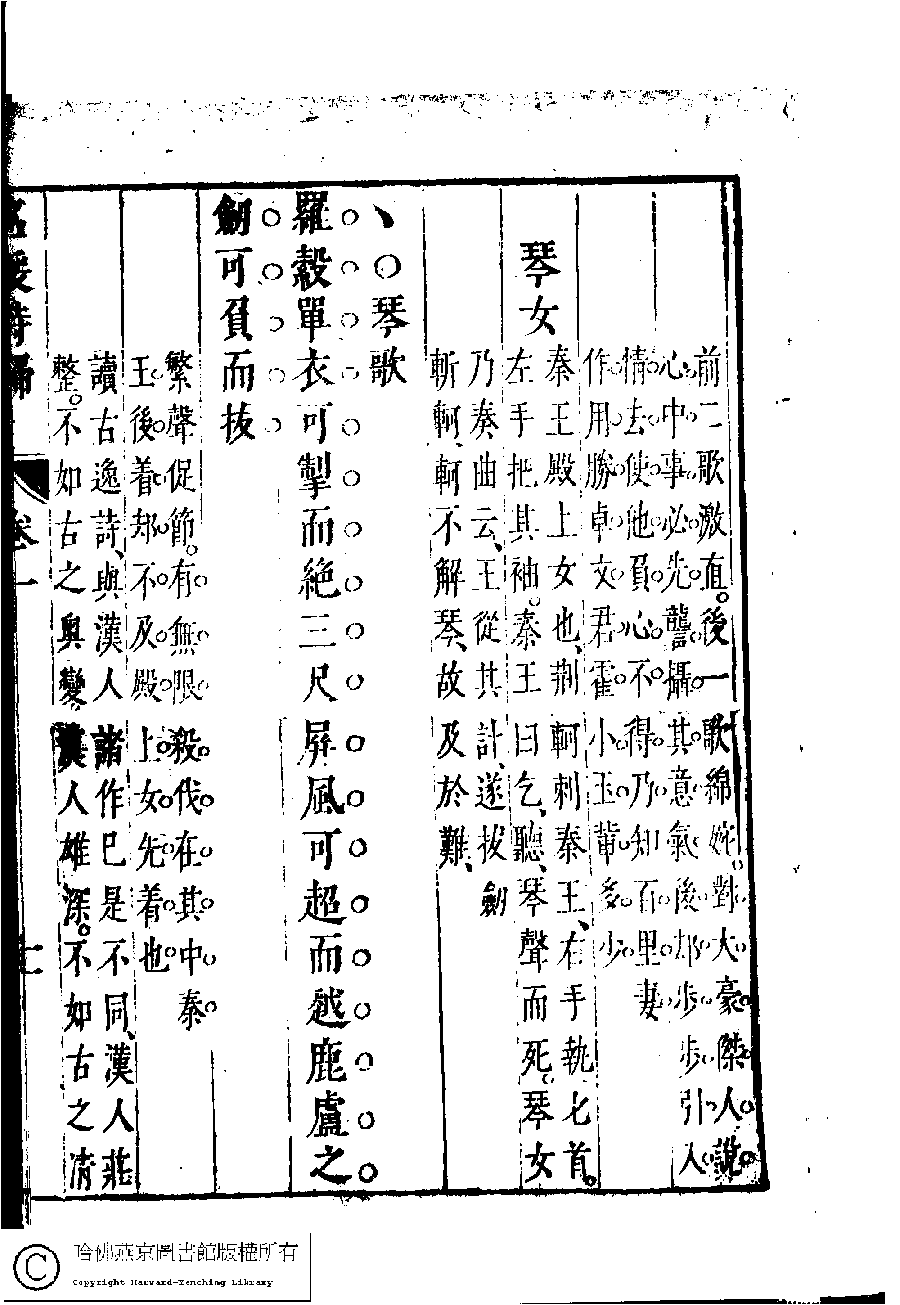 前二歌激直。後一歌綿婉。對大豪傑人說
心中事必先讋攝其意氣後却步步引人
情去使他負心不得乃知百里妻
作用勝卓文君霍小玉輩多少
琴女
秦王殿上女也、荊軻刺秦王、右手執匕首。
左手把其袖。秦王曰乞、聽琴聲而死。琴女
乃奏曲云、王從其計、遂拔劍
斬軻、軻不解琴、故及於難、
、○琴歌
羅縠單衣可掣而絕三尺屏風可超而越鹿盧之
劒可負而拔
繁聲促節。有無限殺伐在其中秦
王後着却不及殿上女先着也
讀古逸詩、與漢人諸作已是不同、漢人莊
整。不如古之奧變。漢人雄深。不如古之清
名媛詩歸 卷一
哈佛燕京圖書館版權所有
Copyright Harvard-Yenching Library